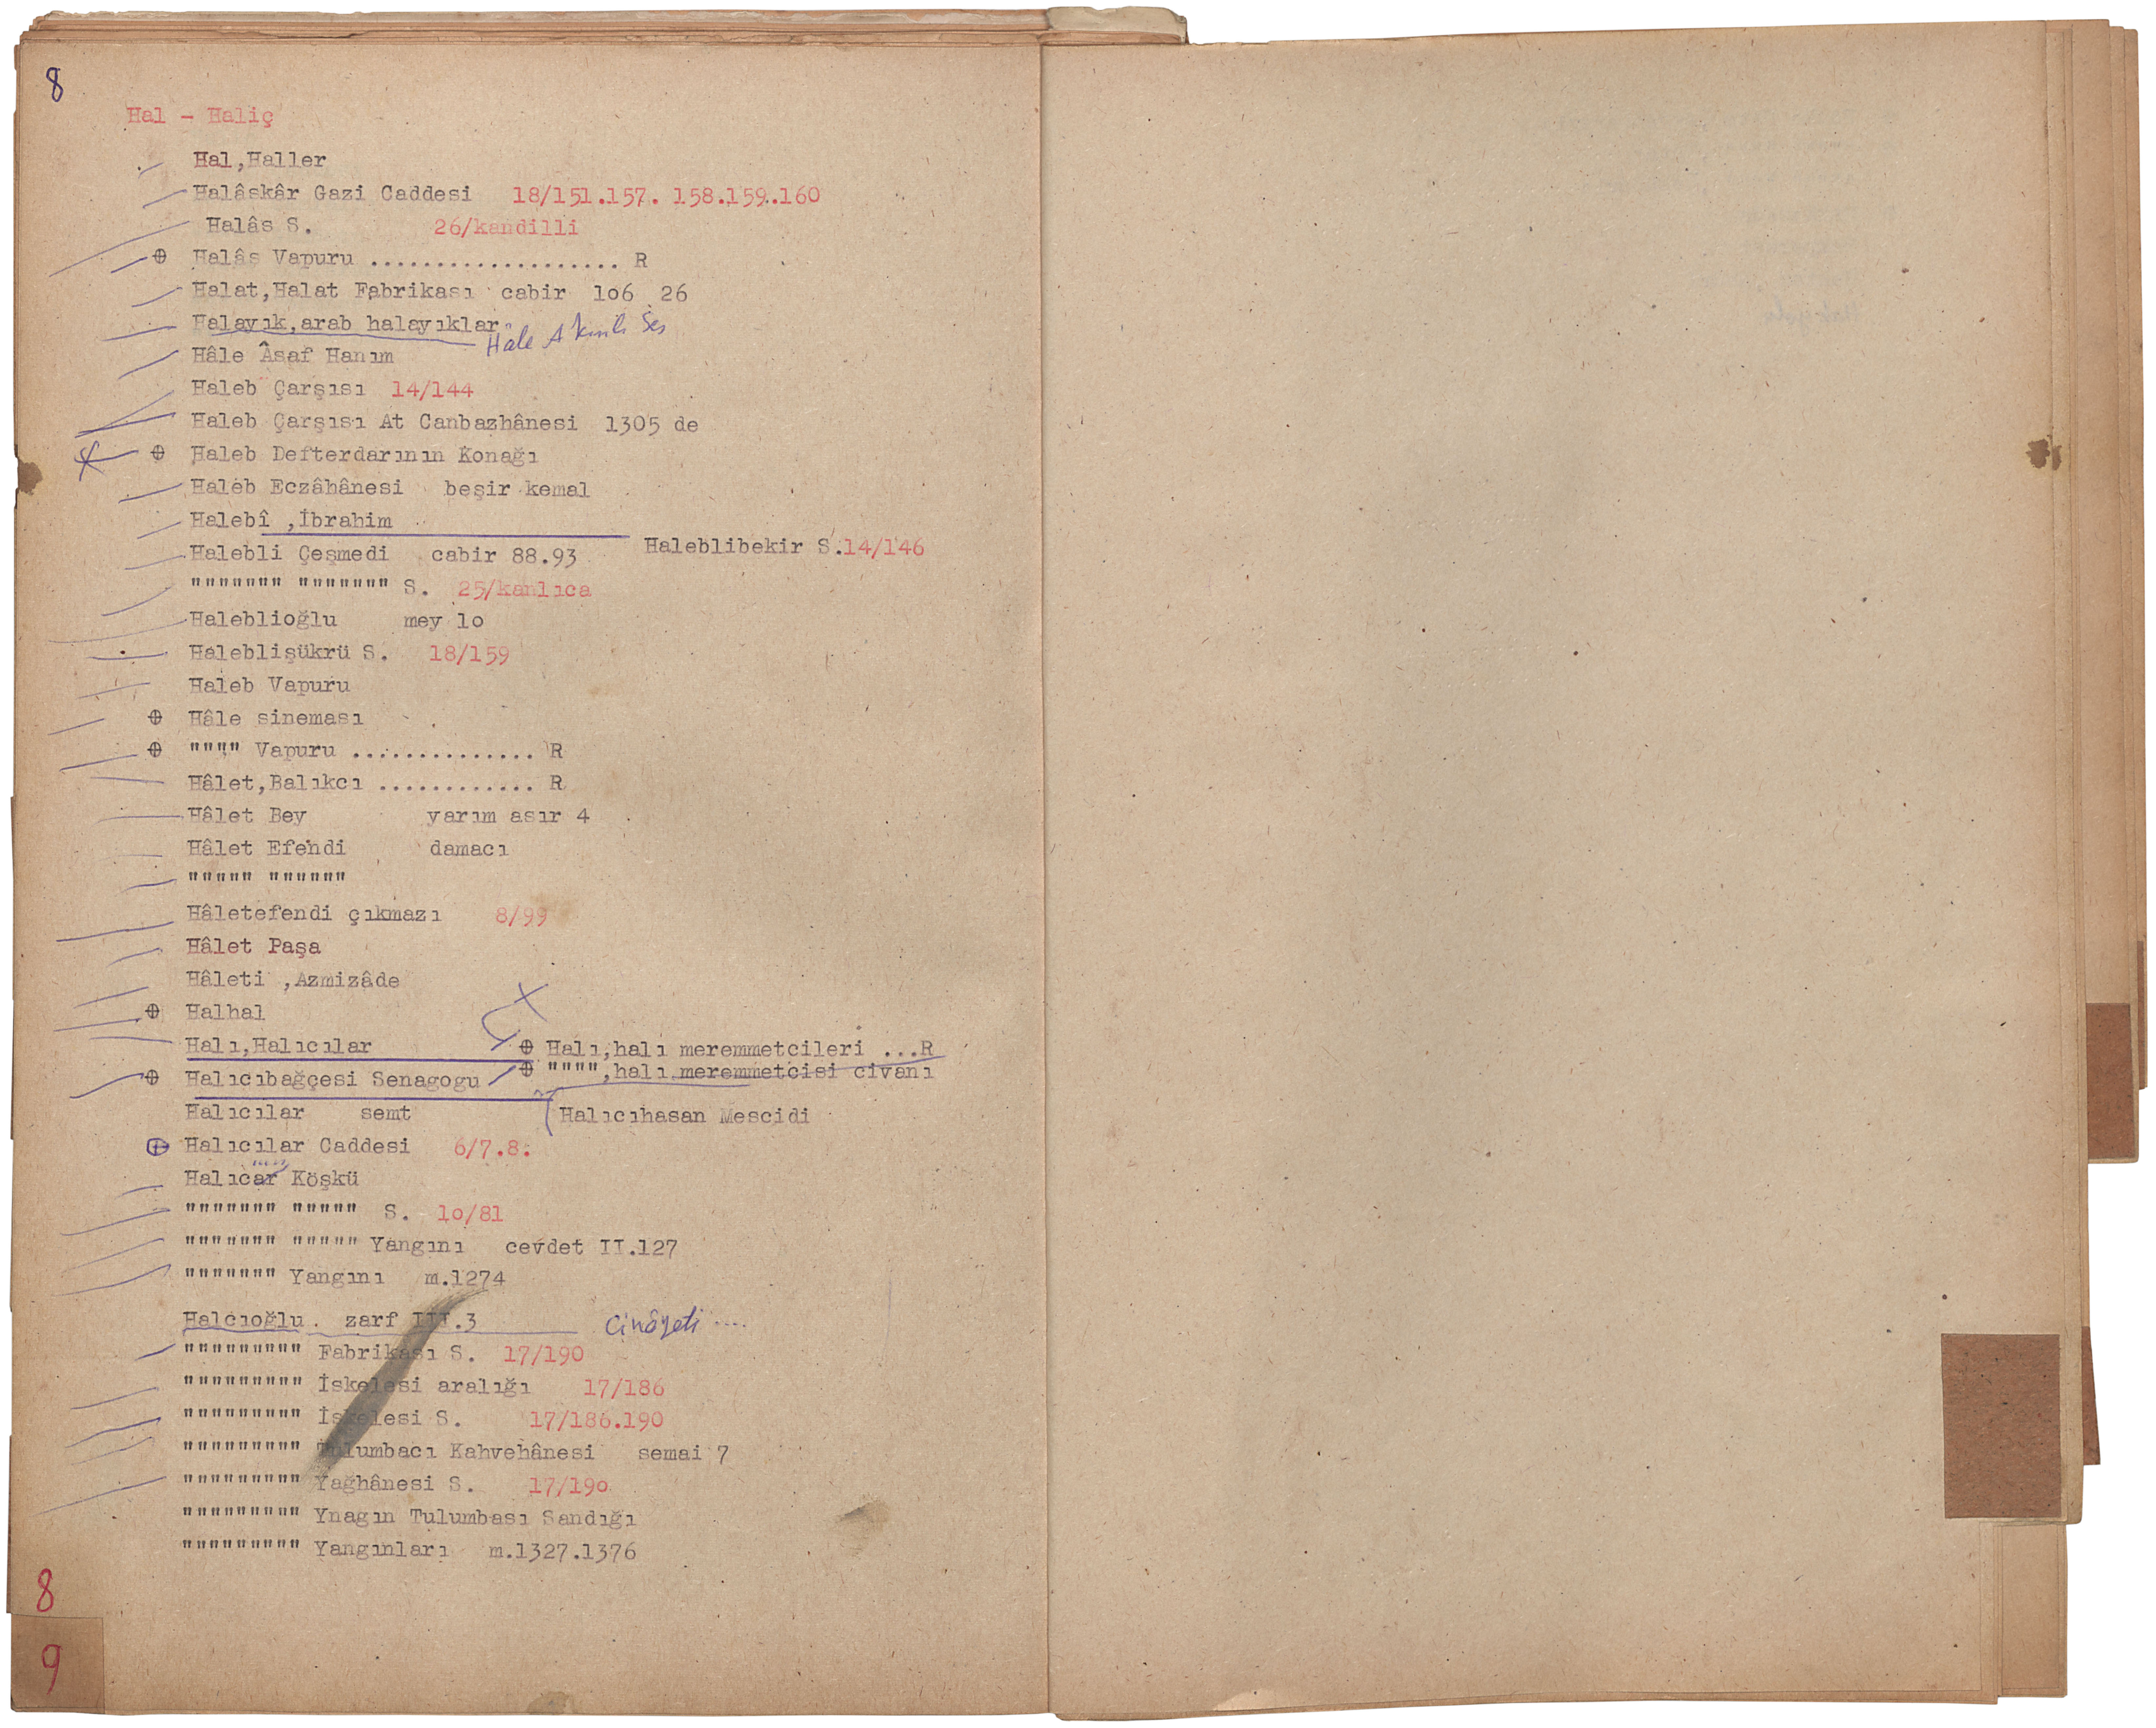 8
Hal - Haliç
Hal,Haller
Halâskâr Gazi Caddesi 18/151.157. 158.159..160
Halâs S. 26/kandilli
⊕ Halâs Vapuru ................... R
Halat,Halat Fabrikası cabir 1o6 26
Halayık,arab halayıklar
Hâle A
Hâle Âsaf Hanım
Haleb Çarşısı 14/144
Haleb Çarşısı At Canbazhânesi 1305 de
⊕ Haleb Defterdarının Konağı
Haleb Eczâhânesi beşir kemal
Halebî ,İbrahim
Halebli Çeşmedi cabir 88.93 Haleblibekir S.14/146
""""""" """"""" S. 25/kanlıca
Haleblioğlu mey 1o
Haleblişükrü S. 18/159
Haleb Vapuru
⊕ Hâle sineması
⊕ """" Vapuru .............. R
Hâlet,Balıkcı ............ R
Hâlet Bey yarım asır 4
Hâlet Efendi damacı
""""" """"""
Hâletefendi çıkmazı 8/99
Hâlet Paşa
Hâleti ,Azmizâde
⊕ Halhal
Halı,Halıcılar ⊕ Halı,halı meremmetcileri ...R
⊕ """",halı meremmetcisi civanı
⊕ Halıcıbağçesi Senagogu
Halıcılar semt Halıcıhasan Mescidi
⊕ Halıcılar Caddesi 6/7.8.
Halıcar Köşkü
""""""" """"" S. 1o/81
""""""" """"" Yangını cevdet II.127
""""""" Yangını m.1274
Halcıoğlu . zarf III.3 Cinâyeti ....
""""""""" Fabrikası S. 17/190
""""""""" İskelesi aralığı 17/186
""""""""" İskelesi S. 17/186.190
""""""""" Tulumbacı Kahvehânesi semai 7
""""""""" Yağhânesi S. 17/19o
""""""""" Ynagın Tulumbası Sandığı
""""""""" Yangınları m.1327.1376
8
9